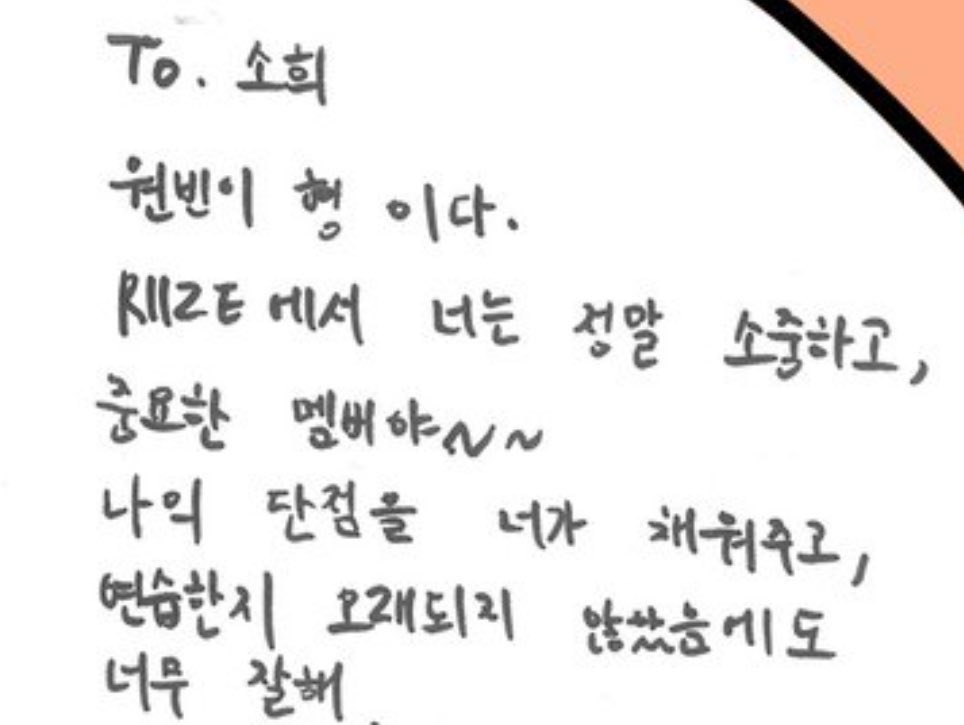 To. 소희
원빈이 형 이다.
RIIZE에서 너는 정말 소중하고,
중요한 멤버야~~
나의 단점을 너가 채워주고,
연습한지 오래되지 않았음에도
너무 잘해